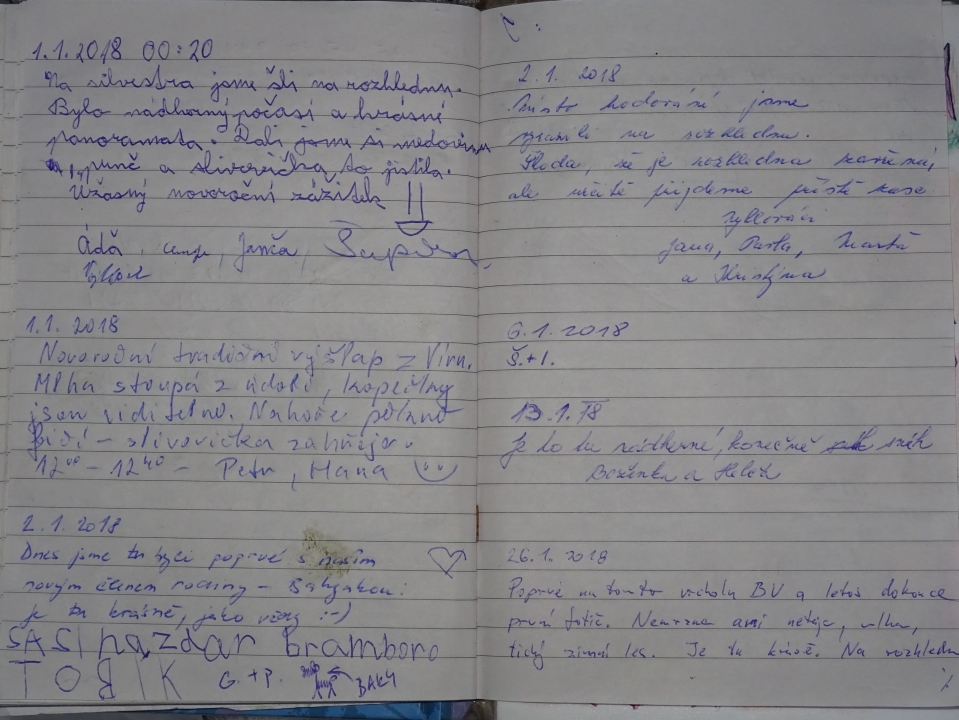 1.1.2018 00:20
Na silvestra jsme šli na rozhlednu.
Bylo nádherný počasí a krásné
panoramata. Dali jsme si medovinu
a slivovička to jistila.
Úžasný novoroční zážitek
Áďa, Janča,
1.1. 2018
Novoroční tradiční výšlap z Víru.
Mlha stoupá z údolí, kopečky
jsou viditelno. Nahoře pěkně
- slivovička zahřeje.
12⁰⁰ - 12⁴⁰ - Petr, Hana
2.1.2018
Dnes jsme tu byli poprvé s naším
novým členem rodiny -
Je tu krásně, jako vždy :-)
SASI nazdar bramboro
TOBIK G.+P. BAKY
2.1. 2018
Místo hodování jsme
vyrazili na rozhlednu.
Škoda, že je rozhledna zavřená,
ale určitě přijdeme příště zase
Jana, Pavla, Marta
a Kristýna
6.1.2018
Š.+I.
13.1.18
Je to tu nádherné, konečně sníh
Boženka a
26.1.2018
Poprvé na tomto vrcholu BV a letos dokonce
první fotič. Nemrzne ani netaje, mlha,
tichý zimní les. Je tu krásně. Na rozhlednu